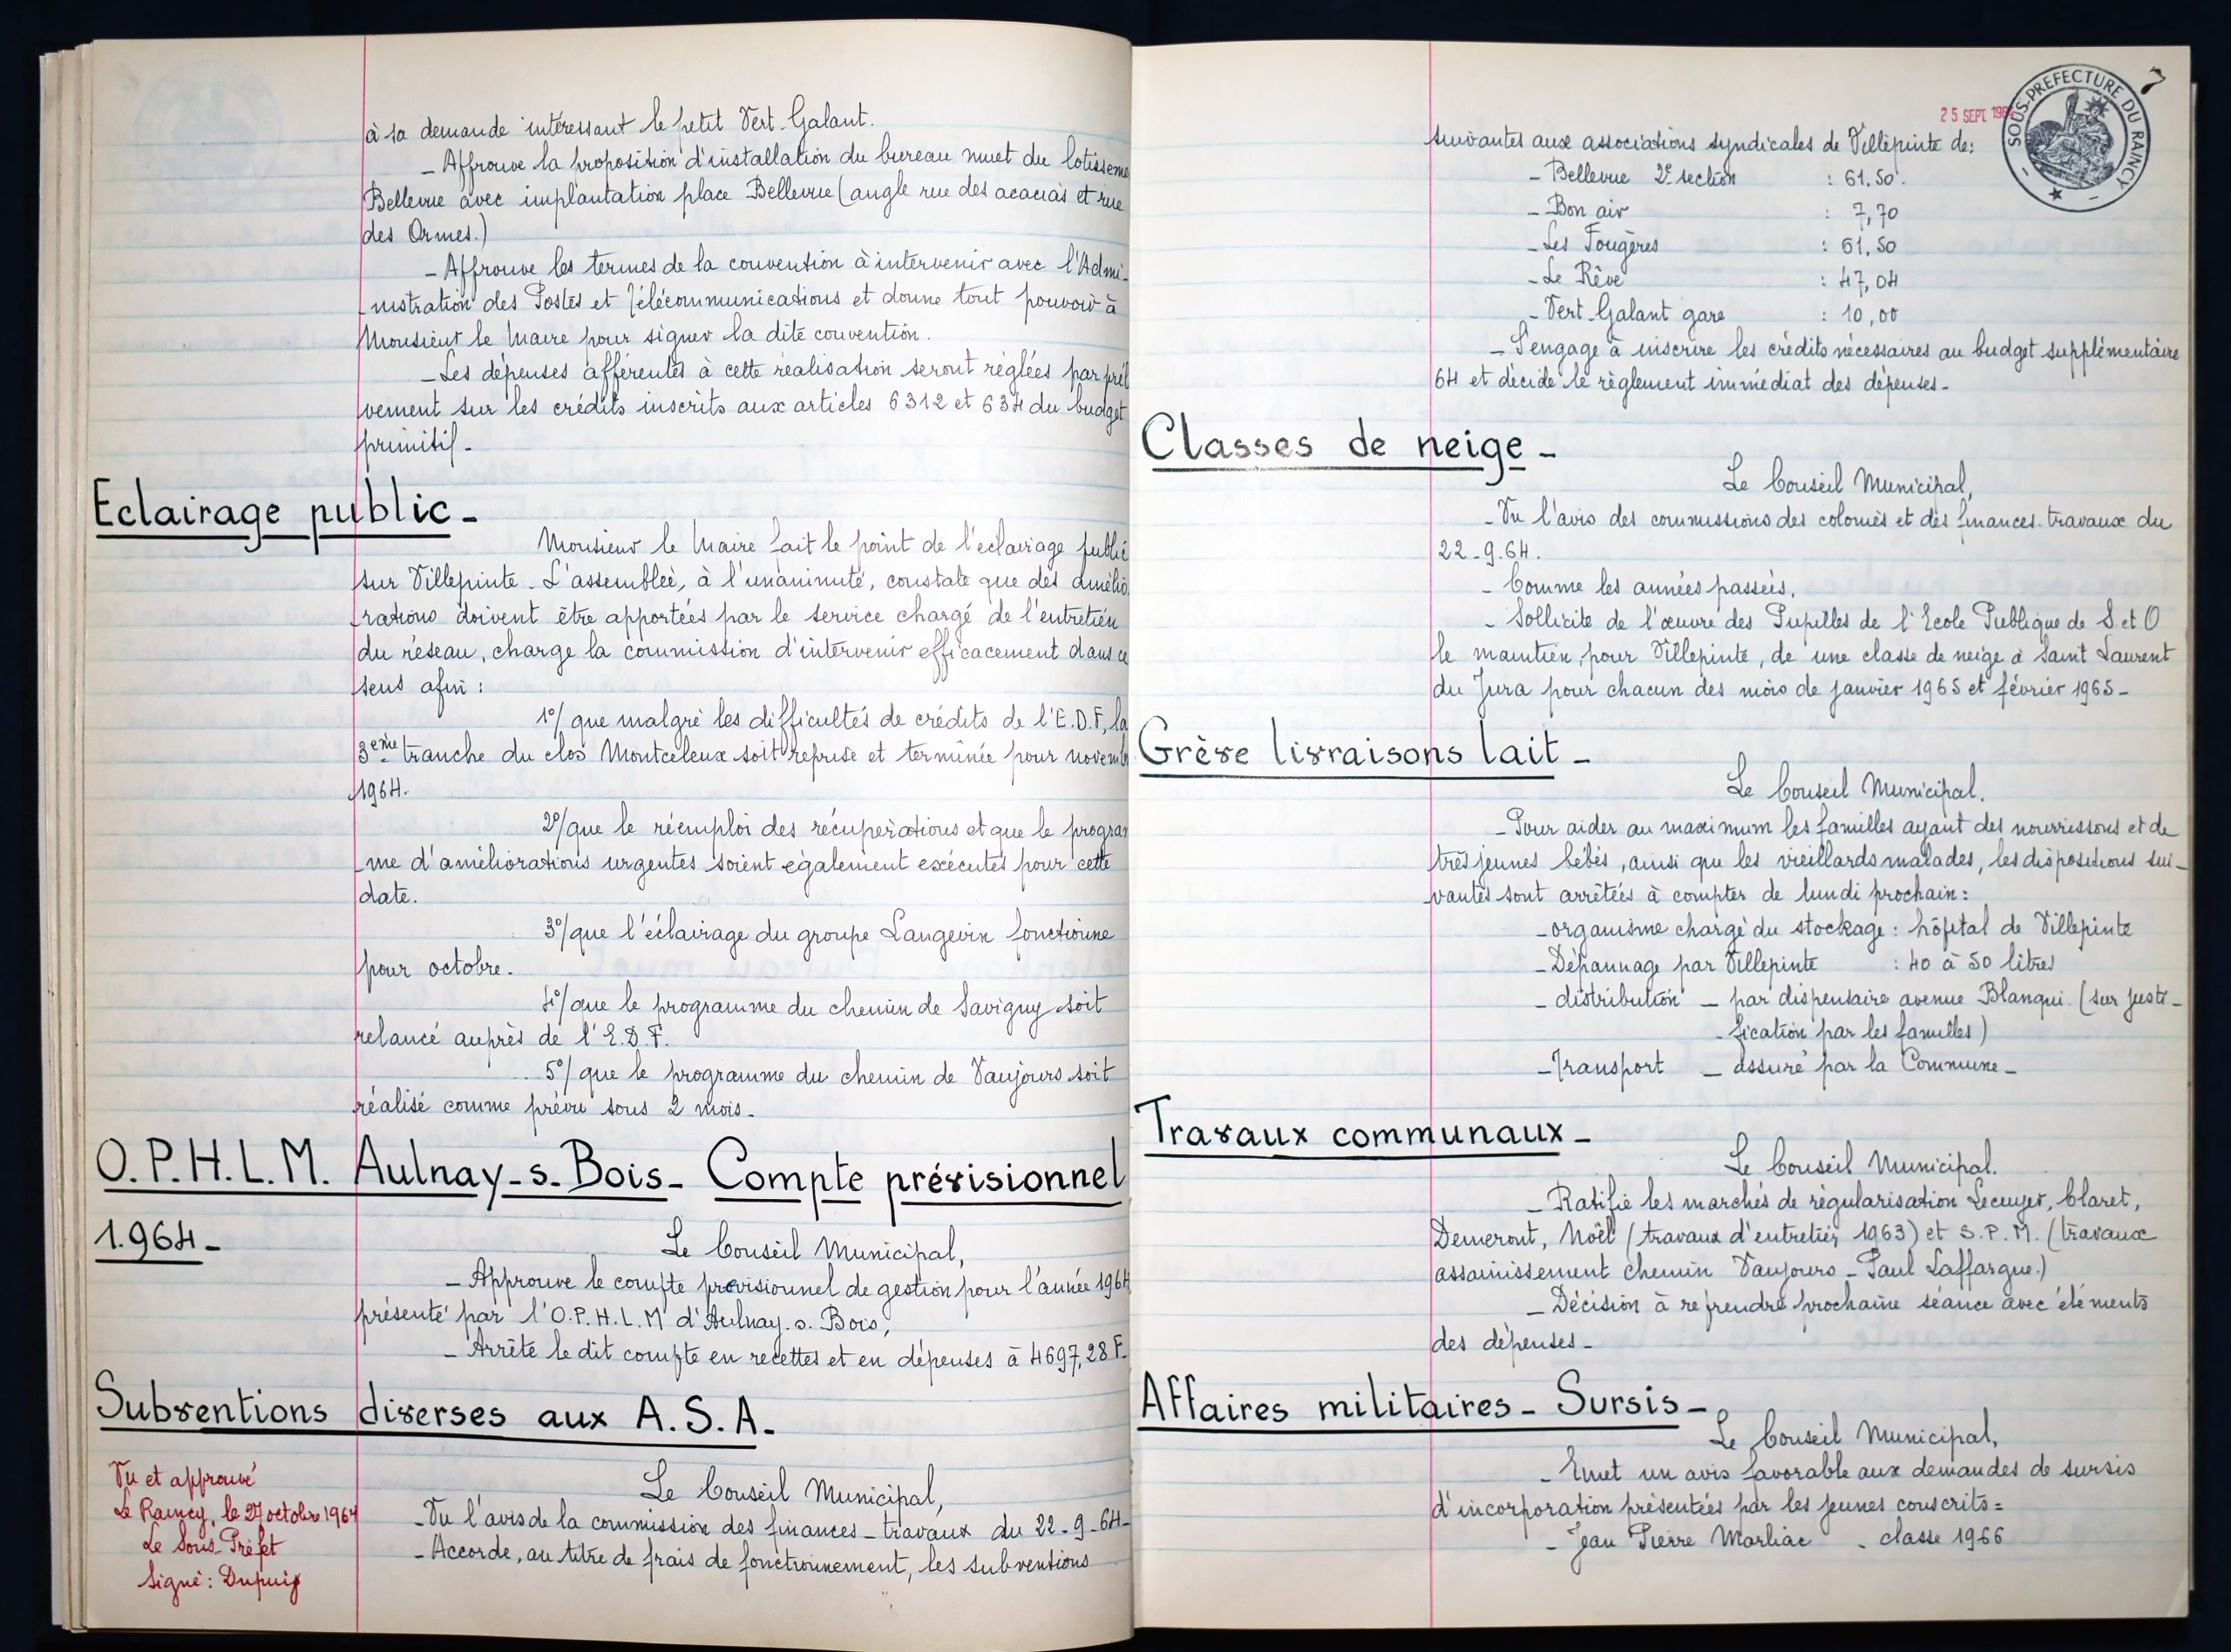 à sa demande intéressant le petit Vert-Galant.
- Approuve la proposition d'installation du bureau muet du lotisseme
Bellevue avec implantation place Bellevue (angle rue des acacias et rue
des Ormes.)
- Approuve les termes de la convention à intervenir avec l'Admi-
-nistration des Postes et Télécommunications et donne tout pouvoir à
Monsieur le Maire pour signer la dite convention.
- Les dépenses afférentes à cette réalisation seront réglées par prél
vement sur les crédits inscrits aux articles 6312 et 634 du budget
primitif -
Eclairage public -
Monsieur le Maire fait le point de l'éclairage public
sur Villepinte - L'assemblée, à l'unanimité, constate que des amélio
-rations doivent être apportées par le service chargé de l'entretien
du réseau, charge la commission d'intervenir efficacement dans ce
sens afin :
1°/ que malgré les difficultés de crédits de l'E.D.F, la
3ème tranche du clos Montceleux soit reprise et terminée pour novemb
1964.
2°/ que le réemploi des récupérations et que le program
-me d'améliorations urgentes soient également exécutés pour cette
date.
3°/ que l'éclairage du groupe Langevin fonctionne
pour octobre.
4°/ que le programme du chemin de Savigny soit
relancé auprès de l'E.D.F.
5°/ que le programme du chemin de Vaujours soit
réalisé comme prévu sous 2 mois.
O.P.H.L.M. Aulnay-s-Bois - Compte prévisionnel
1.964 -
Le Conseil Municipal,
- Approuve le compte prévisionnel de gestion pour l'année 1964
présenté par l'O.P.H.L.M d'Aulnay.s.Bois,
- Arrête le dit compte en recettes et en dépenses à 4697,28 F.
Subventions diverses aux A.S.A.
Le Conseil Municipal,
- Vu l'avis de la commission des finances - travaux du 22-9-64-
- Accorde, au titre de frais de fonctionnement, les subventions
Vu et approuvé
Le Raincy, le 27 octobre 1964
Le Sous-Préfet
Signé : Dupuis
7
25 SEPT 196
SOUS-PREFECTURE DU RAINCY
suivantes aux associations syndicales de Villepinte de:
- Bellevue 2e section : 61.50.
- Bon air : 7,70
- Les Fougères : 61,50
- Le Rêve : 47,04
- Vert-Galant gare : 10,00
- S'engage à inscrire les crédits nécessaires au budget supplémentaire
64 et décide le règlement immédiat des dépenses -
Classes de neige -
Le Conseil Municipal,
- Vu l'avis des commissions des colonies et des finances-travaux du
22-9.64.
- Comme les années passées,
- Sollicite de l'œuvre des Pupilles de l'Ecole Publique de S. et O
le maintien, pour Villepinte, de une classe de neige à Saint Laurent
du Jura pour chacun des mois de janvier 1965 et février 1965 -
Grève livraisons lait -
Le Conseil Municipal.
- Pour aider au maximum les familles ayant des nourrissons et de
très jeunes bébés, ainsi que les vieillards malades, les dispositions sui-
vantes sont arrêtées à compter de lundi prochain:
- organisme chargé du stockage : hôpital de Villepinte
- Dépannage par Villepinte : 40 à 50 litres
- distribution - par dispensaire avenue Blanqui. (sur justi-
-fication par les familles)
- Transport - assuré par la Commune -
Travaux communaux -
Le Conseil Municipal.
- Ratifie les marchés de régularisation Lecuyer, Claret,
Demeront, Noël (travaux d'entretien 1963) et S.P.M. (travaux
assainissement chemin Vaujours - Paul Laffargue.)
- Décision à reprendre prochaine séance avec éléments
des dépenses -
Affaires militaires - Sursis -
Le Conseil Municipal,
- Emet un avis favorable aux demandes de sursis
d'incorporation présentées par les jeunes conscrits =
- Jean Pierre Marliac - classe 1966